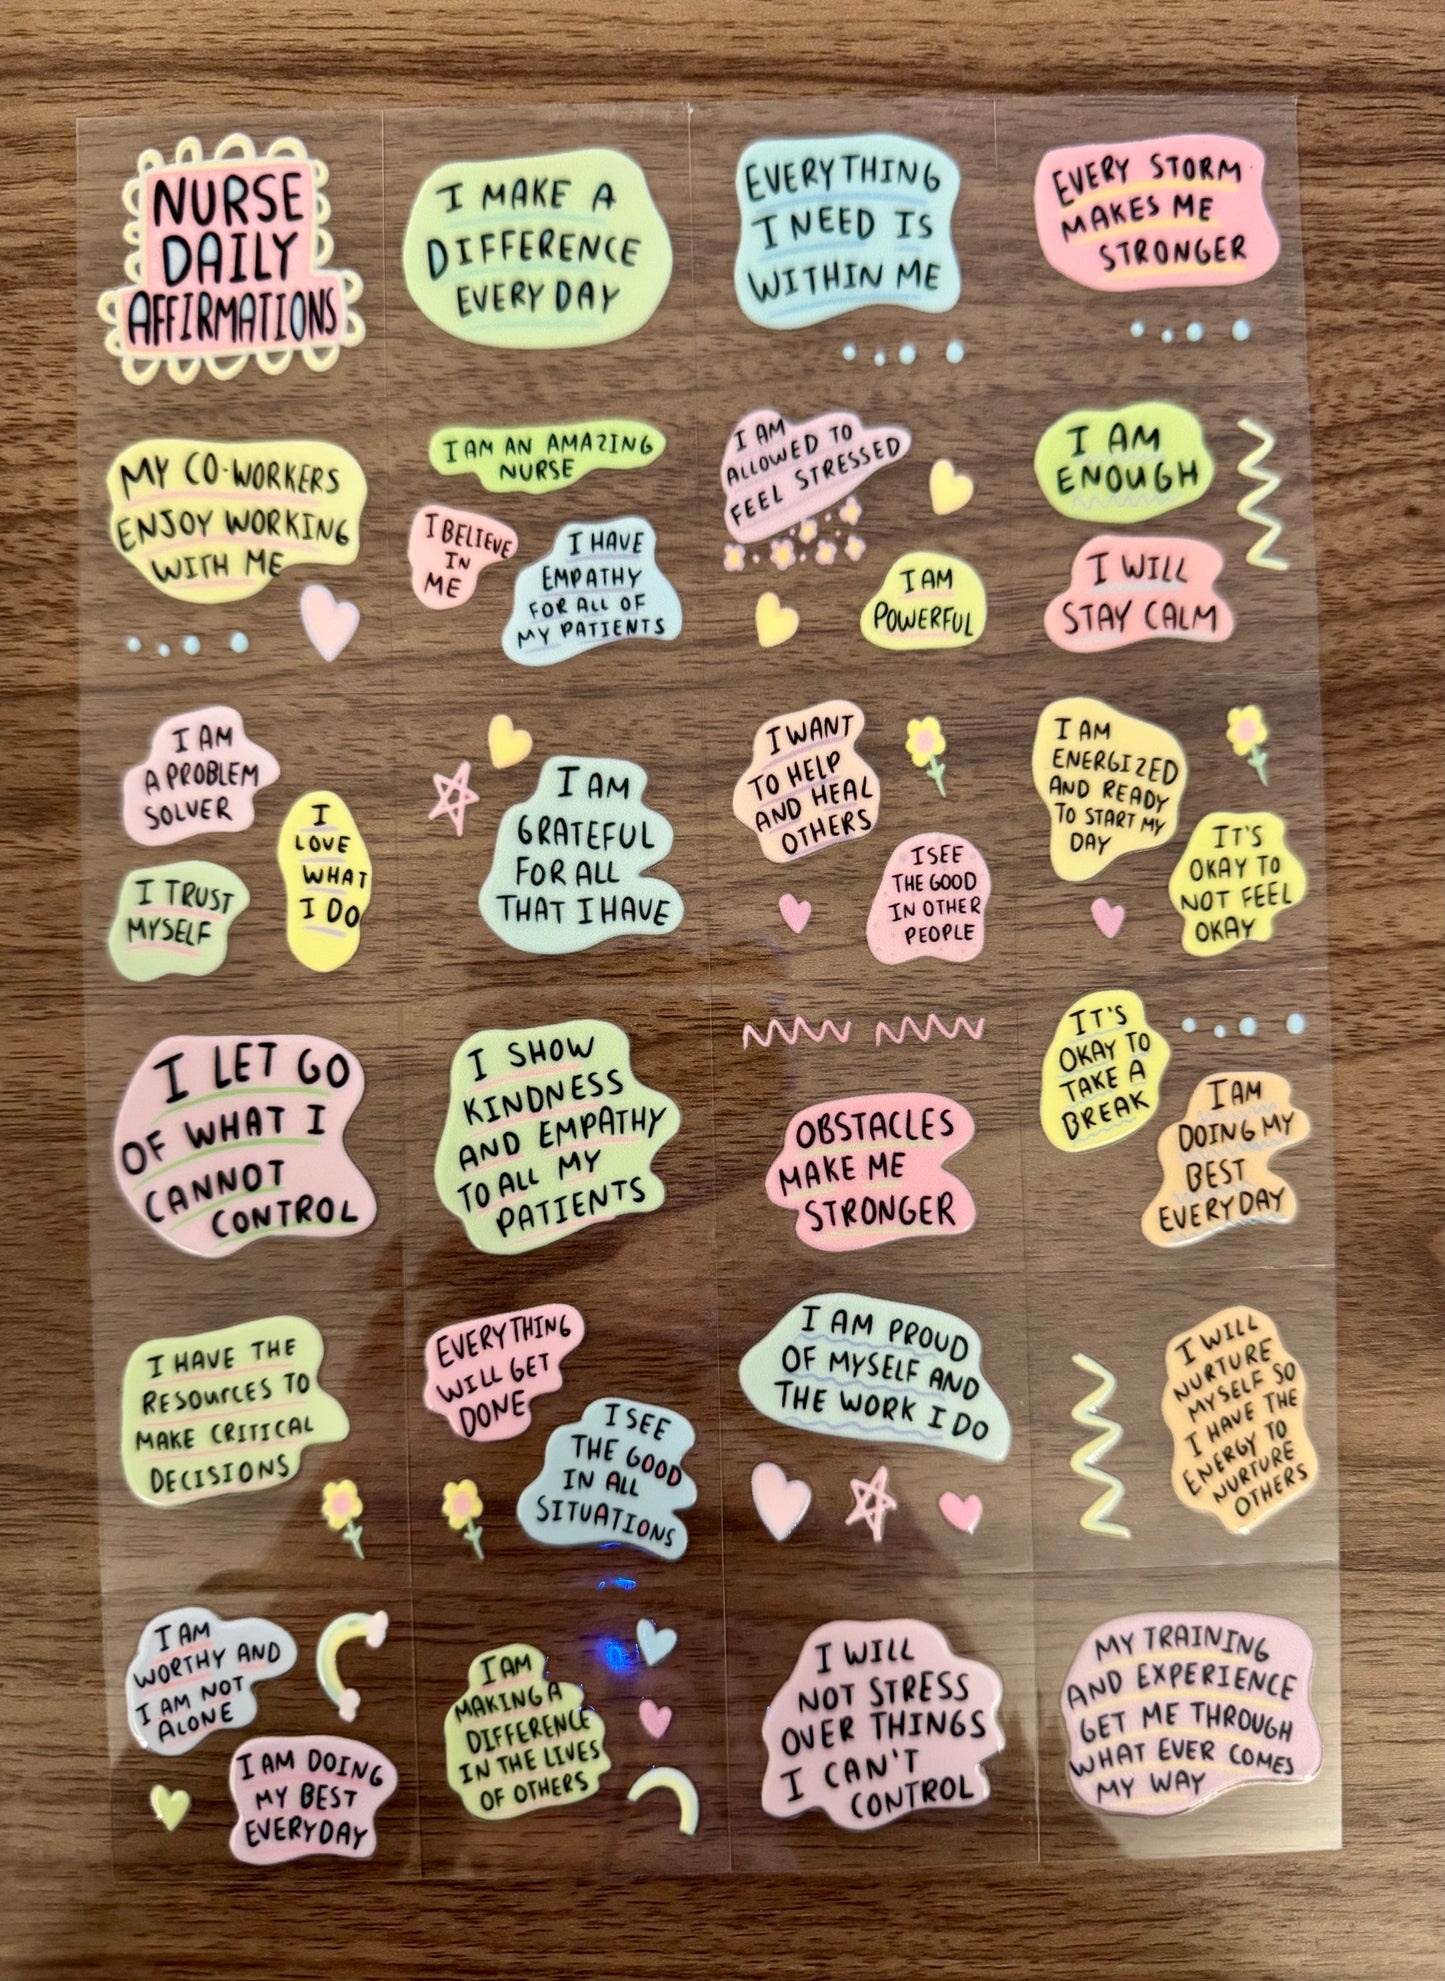 NURSE
DAILY
AFFIRMATIONS
I MAKE A
DIFFERENCE
EVERY DAY
EVERYTHING
I NEED IS
WITHIN ME
EVERY STORM
MAKES ME
STRONGER
MY CO-WORKERS
ENJOY WORKING
WITH ME
I AM AN AMAZING
NURSE
I BELIEVE
IN
ME
I HAVE
EMPATHY
FOR ALL OF
MY PATIENTS
I AM
ALLOWED TO
FEEL STRESSED
I AM
POWERFUL
I AM
ENOUGH
I WILL
STAY CALM
I AM
A PROBLEM
SOLVER
I
LOVE
WHAT
I DO
I TRUST
MYSELF
I AM
GRATEFUL
FOR ALL
THAT I HAVE
I WANT
TO HELP
AND HEAL
OTHERS
I SEE
THE GOOD
IN OTHER
PEOPLE
I AM
ENERGIZED
AND READY
TO START MY
DAY
IT'S
OKAY TO
NOT FEEL
OKAY
I LET GO
OF WHAT I
CANNOT
CONTROL
I SHOW
KINDNESS
AND EMPATHY
TO ALL MY
PATIENTS
OBSTACLES
MAKE ME
STRONGER
IT'S
OKAY TO
TAKE A
BREAK
I AM
DOING MY
BEST
EVERYDAY
I HAVE THE
RESOURCES TO
MAKE CRITICAL
DECISIONS
EVERYTHING
WILL GET
DONE
I SEE
THE GOOD
IN ALL
SITUATIONS
I AM PROUD
OF MYSELF AND
THE WORK I DO
I WILL
NURTURE
MYSELF SO
I HAVE THE
ENERGY TO
NURTURE
OTHERS
I AM
WORTHY AND
I AM NOT
ALONE
I AM DOING
MY BEST
EVERYDAY
I AM
MAKING A
DIFFERENCE
IN THE LIVES
OF OTHERS
I WILL
NOT STRESS
OVER THINGS
I CAN'T
CONTROL
MY TRAINING
AND EXPERIENCE
GET ME THROUGH
WHAT EVER COMES
MY WAY